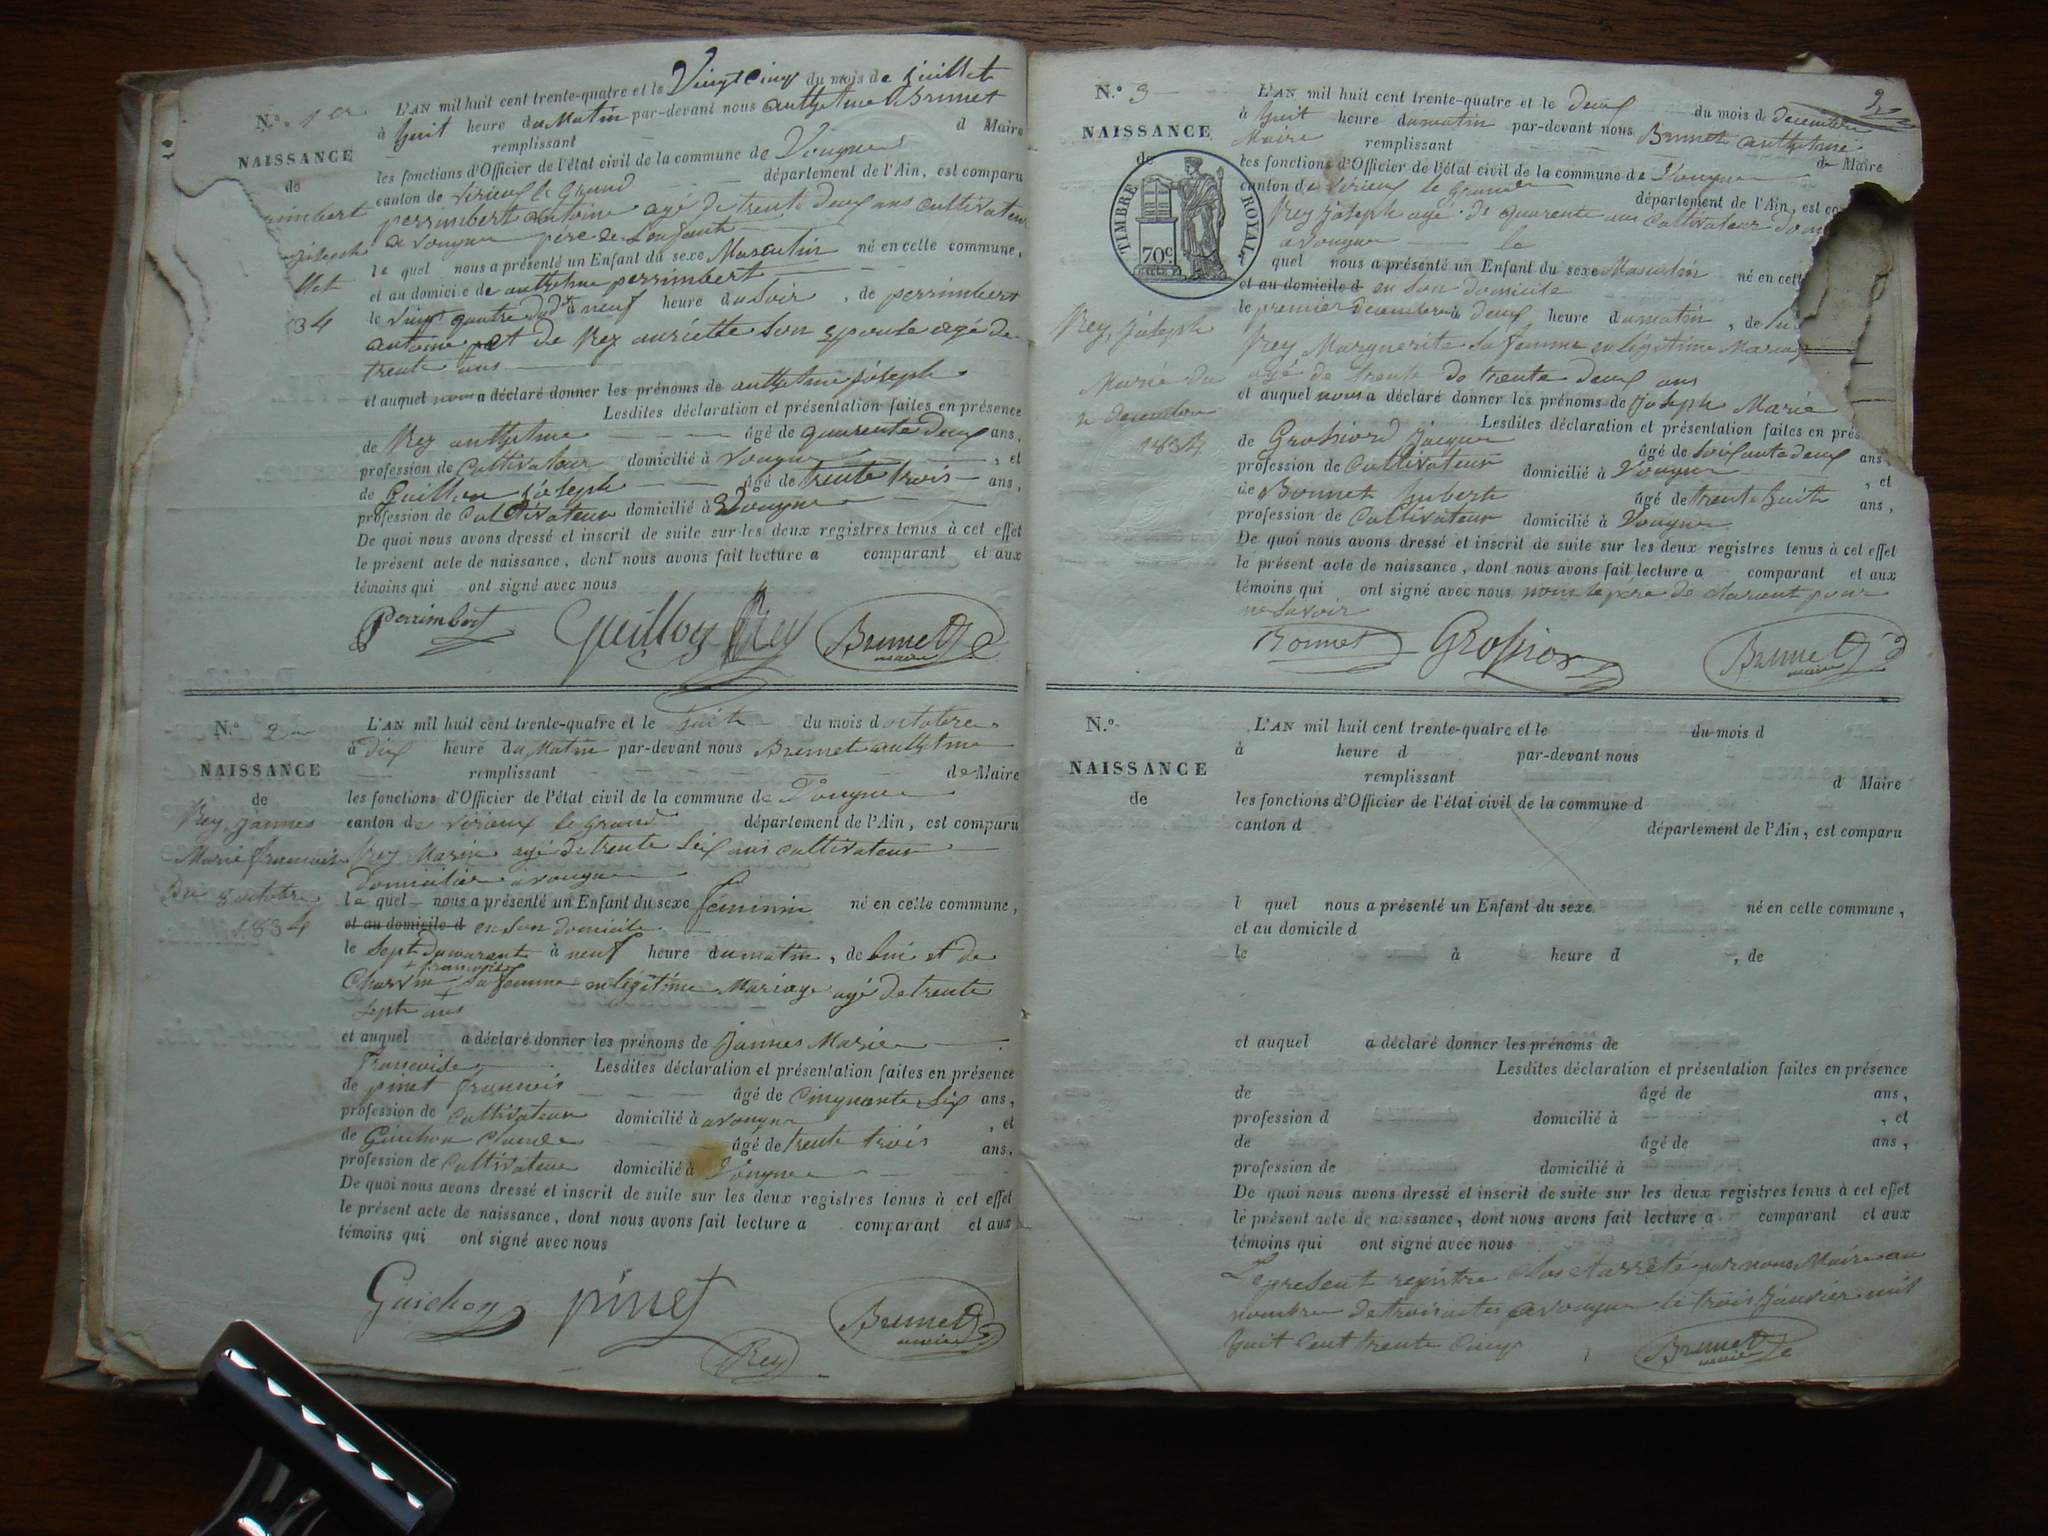 N.º 1er
NAISSANCE
de
rimbert
joseph
llet
34
L'AN mil huit cent trente-quatre et le Vingt Cinq du mois de juillet
à huit heure du Matin par-devant nous anthelme Brunet
remplissant d Maire
les fonctions d'Officier de l'état civil de la commune de Vongne
canton de virieux le grand département de l'Ain, est comparu
perrimbert antoine agé de trente deux ans cultivateur
a vongne père de lenfant
le quel nous a présenté un Enfant du sexe Masculin né en cette commune,
et au domicile de anthelme perrimbert
le vingt quatre dud à neuf heure du Soir, de perrimbert
antoine et de Rey son epouse agé de
trente ans
et auquel nous a déclaré donner les prénoms de anthelme joseph
Lesdites déclaration et présentation faites en présence
de Rey anthelme âgé de quarente deux ans,
profession de Cultivateur domicilié à vongne, et
de Guillon joseph âgé de trente trois ans,
profession de Cultivateur domicilié à Vongne
De quoi nous avons dressé et inscrit de suite sur les deux registres tenus à cet effet
le présent acte de naissance, dont nous avons fait lecture a comparant et aux
témoins qui ont signé avec nous
Perrimbert Guilloy Rey Brunet
maire
N.º 2
NAISSANCE
de
Rey jannes
Marie francoise
Du 8 octobre
1834
L'AN mil huit cent trente-quatre et le huit du mois d octobre
à dix heure du Matin par-devant nous Brunet anthelme
remplissant de Maire
les fonctions d'Officier de l'état civil de la commune de Vongne
canton de virieux le grand département de l'Ain, est comparu
Rey Marin agé de trente Six ans cultivateur
domicilier a vongne
le quel nous a présenté un Enfant du sexe féminin né en cette commune,
et au domicile d en son domicile
le Sept du courant à neuf heure du matin, de lui et de
francoise
Charvin sa femme en légitime Mariage agé de trente
Septe ans
et auquel a déclaré donner les prénoms de jannes Marie
francoise Lesdites déclaration et présentation faites en présence
de pinet francois âgé de Cinquante Six ans,
profession de Cultivateur domicilié à a vongne, et
de Guichon Claude âgé de trente trois ans,
profession de Cultivateur domicilié à Vongne
De quoi nous avons dressé et inscrit de suite sur les deux registres tenus à cet effet
le présent acte de naissance, dont nous avons fait lecture a comparant et aux
témoins qui ont signé avec nous
Guichon pinet Brunet
maire
Rey
2
N.º 3
NAISSANCE
de
TIMBRE ROYAL
70 c
Rey, joseph
Marie du
2 decembre
1834
L'AN mil huit cent trente-quatre et le deux du mois de decembre
à huit heure du matin par-devant nous Brunet anthelme
Maire remplissant de Maire
les fonctions d'Officier de l'état civil de la commune de Vongne
canton de virieux le grand département de l'Ain, est co
Rey joseph agé de quarente ans Cultivateur dom
a vongne le
quel nous a présenté un Enfant du sexe Masculin né en cett
et au domicile d en son domicile
le premier decembre à deux heure du matin, de lui
Rey Marguerite sa femme en légitime Mariag
agé de trente de trente deux ans
et auquel nous a déclaré donner les prénoms de joseph Marie
Lesdites déclaration et présentation faites en prés
de Grossiord jacque âgé de soixante deux ans,
profession de Cultivateur domicilié à Vongne, et
de Bonnet hubert âgé de trente huit ans,
profession de Cultivateur domicilié à Vongne
De quoi nous avons dressé et inscrit de suite sur les deux registres tenus à cet effet
le présent acte de naissance, dont nous avons fait lecture a comparant et aux
témoins qui ont signé avec nous non le père de clarent pour
ne Savoir
Bonnet Grossior Brunet
maire
N.º
NAISSANCE
de
L'AN mil huit cent trente-quatre et le du mois d
à heure d par-devant nous
remplissant d Maire
les fonctions d'Officier de l'état civil de la commune d
canton d département de l'Ain, est comparu
l quel nous a présenté un Enfant du sexe né en cette commune,
et au domicile d
le à heure d , de
et auquel a déclaré donner les prénoms de
Lesdites déclaration et présentation faites en présence
de âgé de ans,
profession d domicilié à , et
de âgé de ans,
profession de domicilié à
De quoi nous avons dressé et inscrit de suite sur les deux registres tenus à cet effet
le présent acte de naissance, dont nous avons fait lecture a comparant et aux
témoins qui ont signé avec nous
Le present registre clos et arrété par nous Maire au
nombre de trois actes a vongne le trois janvier mil
huit Cent trente Cinq
Brunet
maire